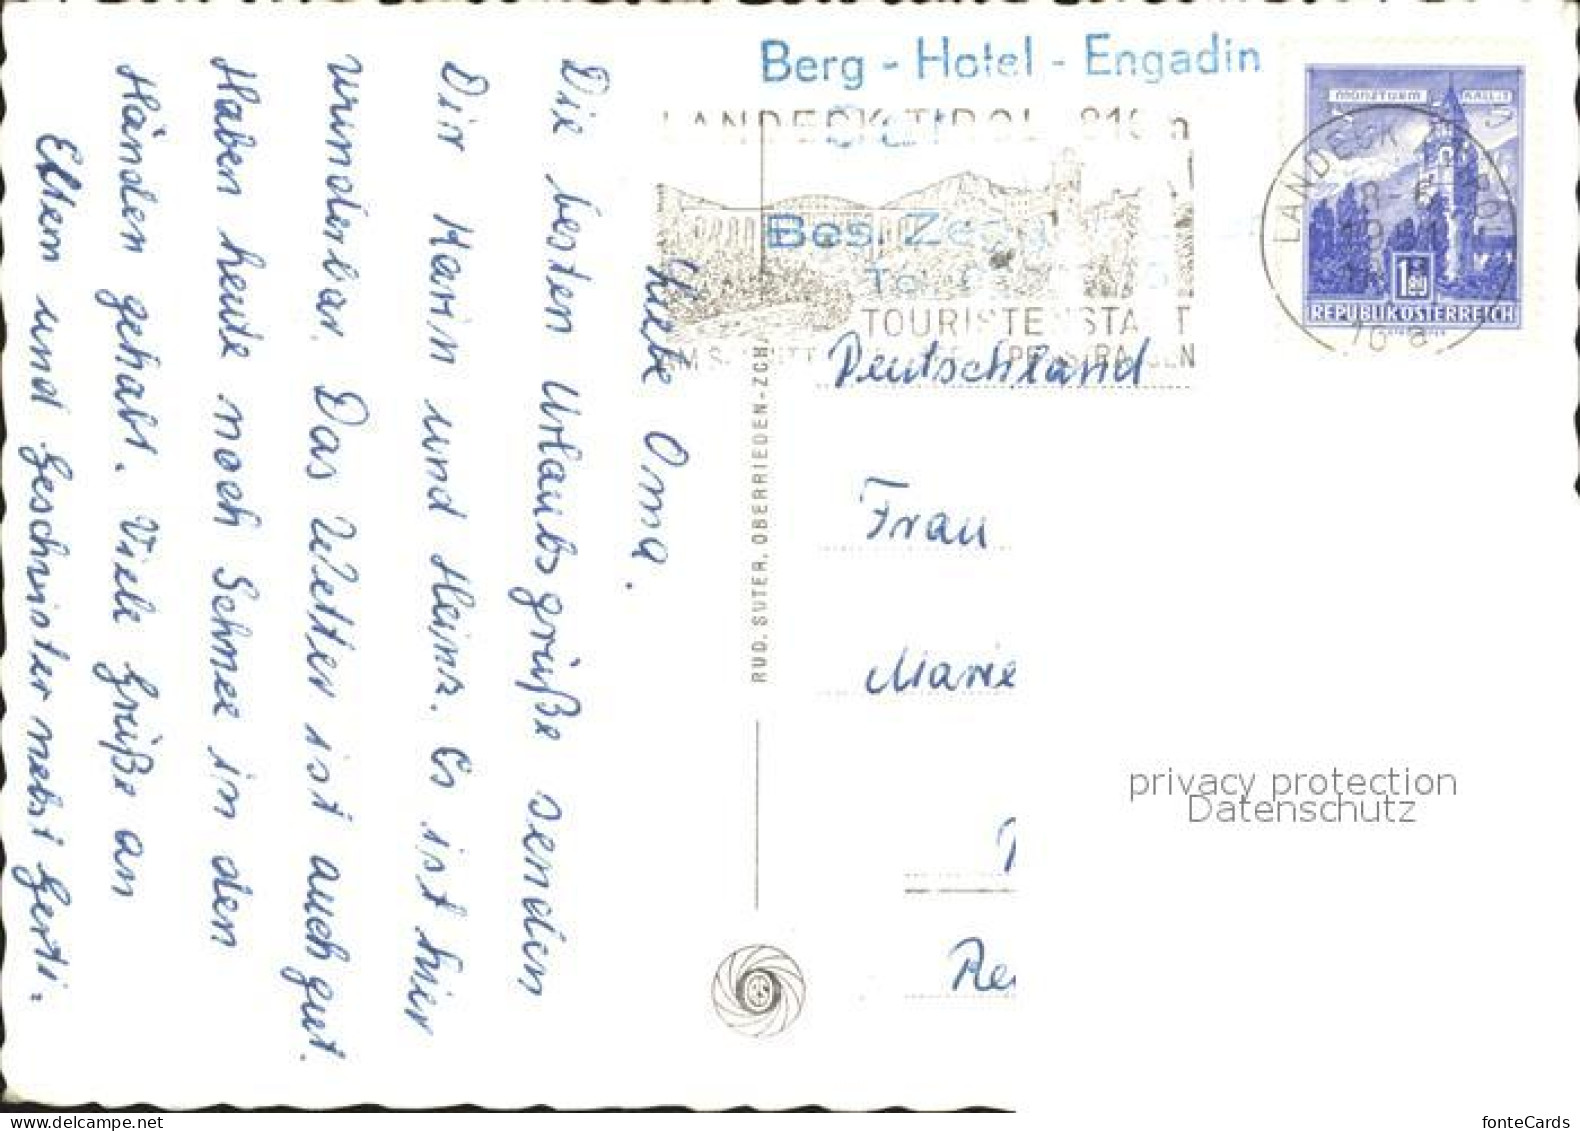 Liebe Oma.
Die besten Urlaubsgrüße senden
Dir Karin und Heinz. Es ist hier
wunderbar. Das Wetter ist auch gut.
Haben heute noch Schnee in den
Händen gehabt. Viele Grüße an
Eltern und Geschwister nebst Gerti.
RUD. SUTER, OBERRIEDEN-ZCH
Berg - Hotel - Engadin
LANDECK-TIROL 816 m
Bes.
TOURISTENSTADT
MÜNZTURM HALL i.T.
1.80
REPUBLIK ÖSTERREICH
LANDECK TIROL
Deutschland
Frau
Marie
Re
privacy protection
Datenschutz
fonteCards